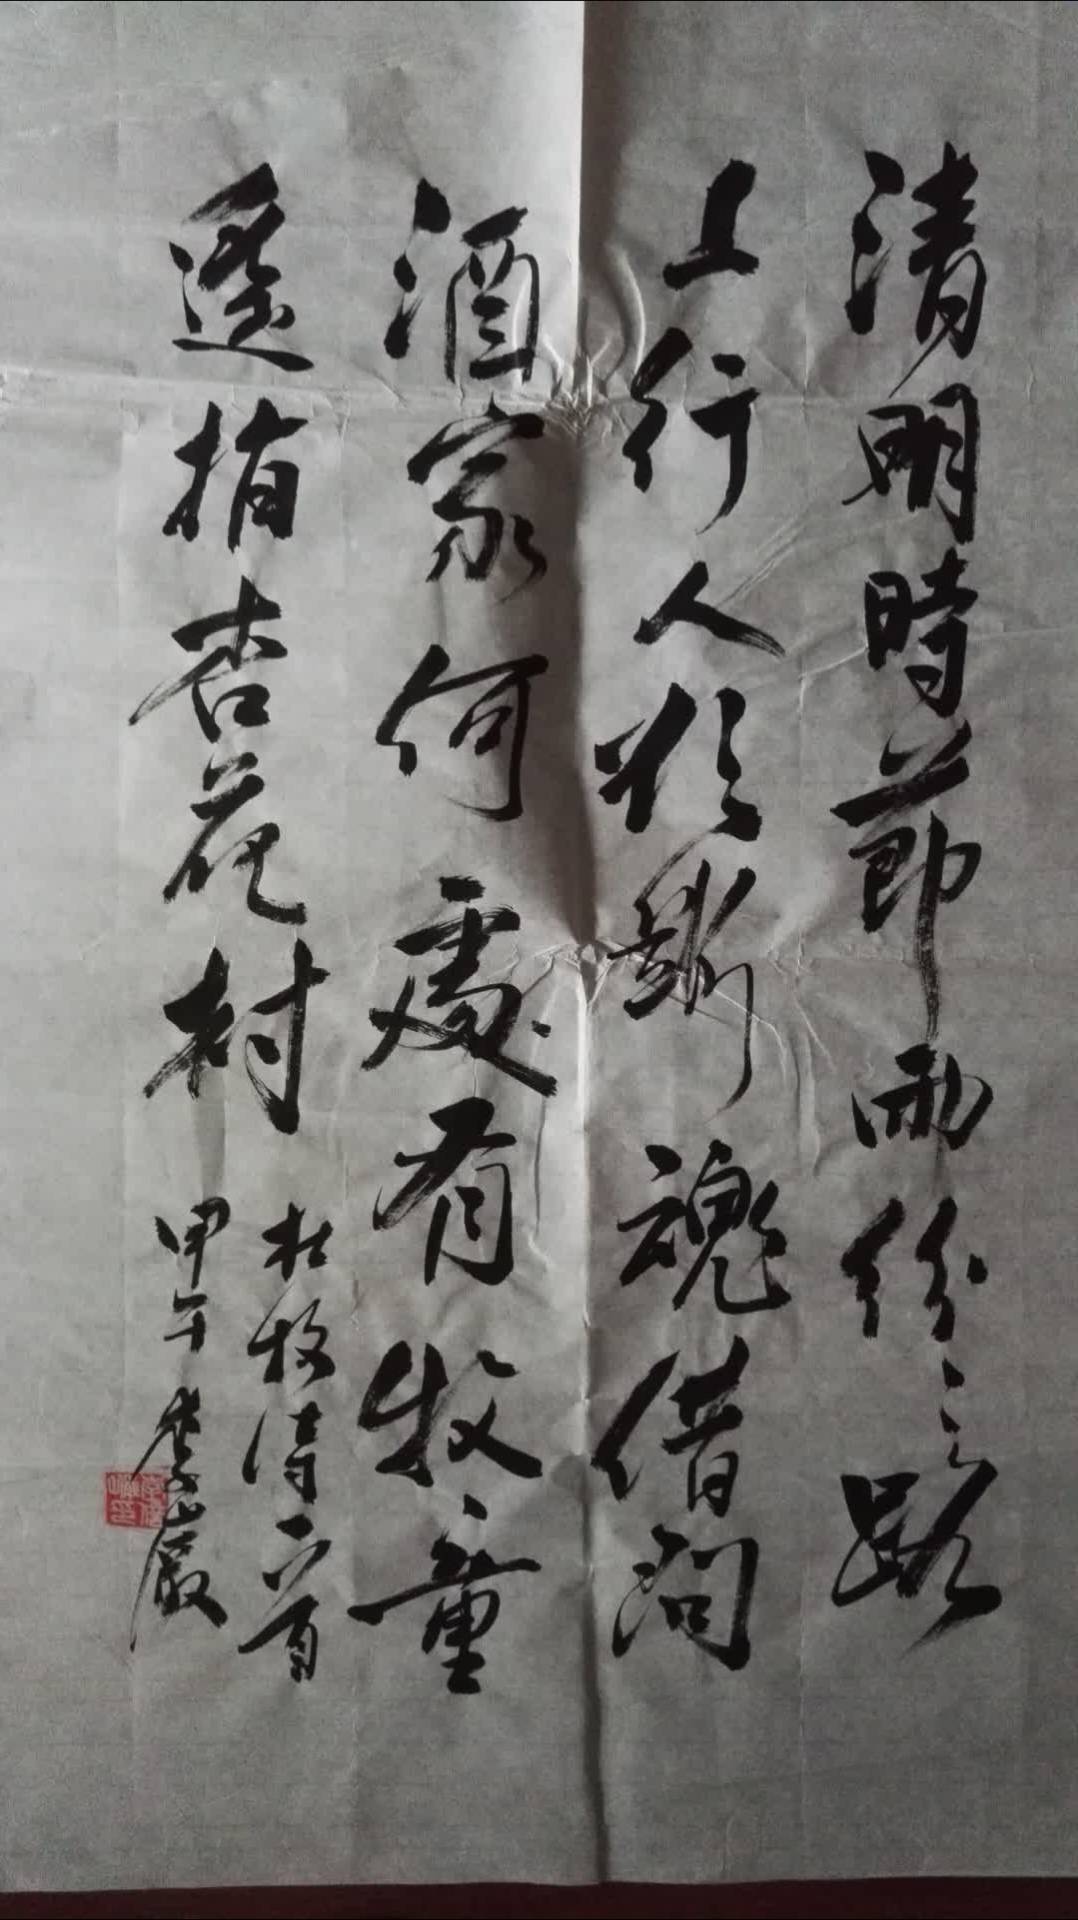 清明時節雨紛々路
上行人欲斷魂借問
酒家何處有牧童
遙指杏花村
杜牧詩一首
甲午 李巖